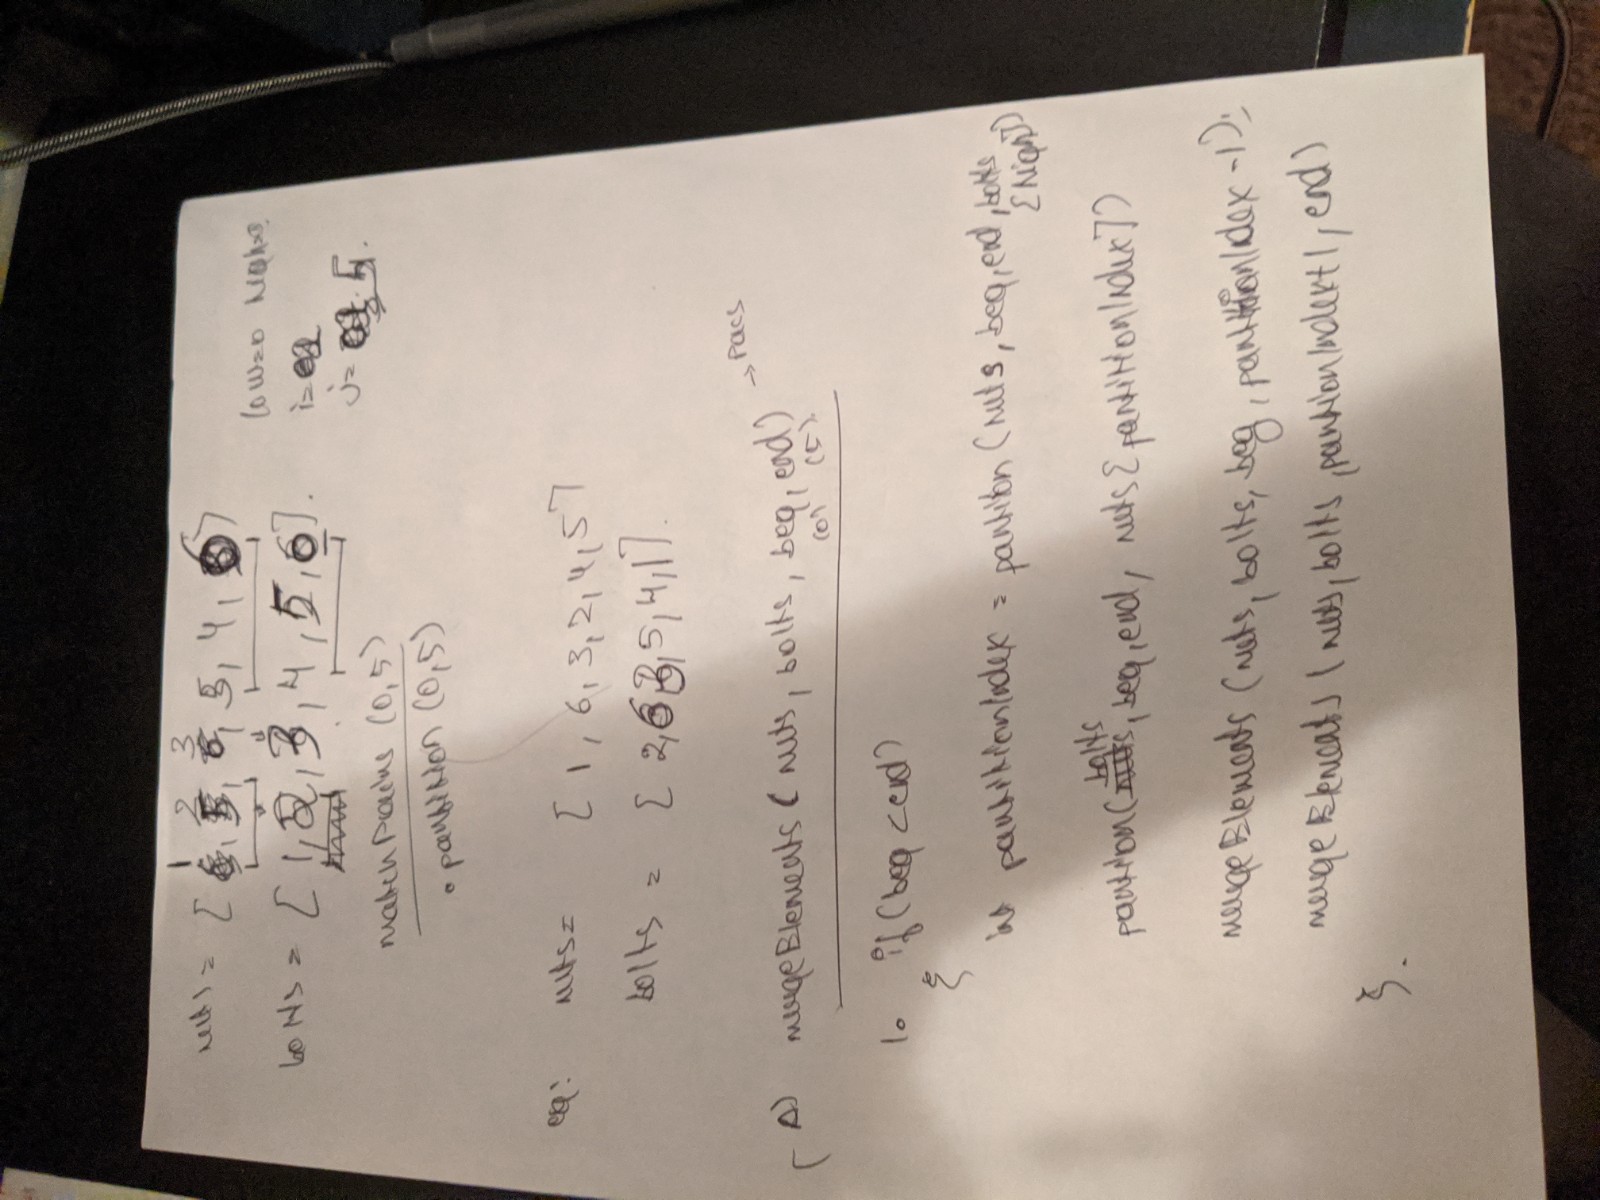 nuts = [ 1, 2, 3, 5, 4, 6]
bolts = [ 1, 2, 3, 4, 5, 6].
low=0
i=
j= 5.
matchPairs (0,5)
• partition (0,5)
eg: nuts= [ 1, 6, 3, 2, 4, 5]
bolts = [ 2, 6, 3, 5, 4, 1].
→ Pass
A) mergeElements ( nuts, bolts, beg, end)
(0) (5).
1. if (beg < end)
{
int partitionIndex = partition (nuts, beg, end, bolts
[right])
partition( bolts, beg, end, nuts[partitionIndex])
mergeElements (nuts, bolts, beg, partitionIndex -1);
mergeElements ( nuts, bolts, partitionIndex+1, end)
}.